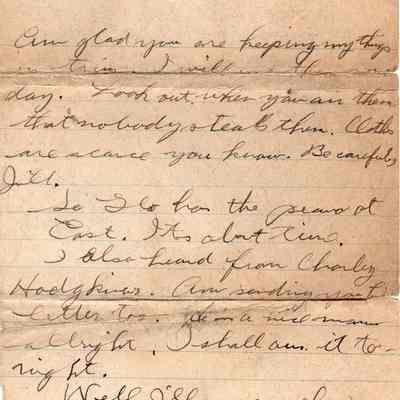 Am glad you are keeping my things
in trim. I will
day. Look out when you air them
that nobody steals them. Clothes
are scarce you know. Be careful,
Jill.
So Flo has the piano at
last. Its about time.
I also heard from Charley
Hodgkins. Am sending you
letter too. He is a nice man
allright. I shall ans. it to-
night.
Well I'll